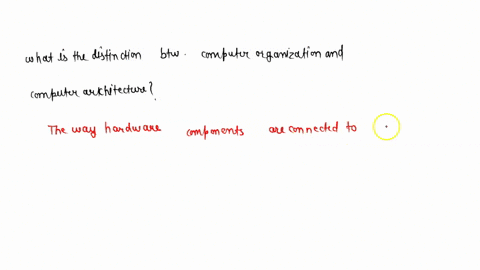 what is the distinction btw. computer organization and
computer architecture?
The way hardware components are connected to